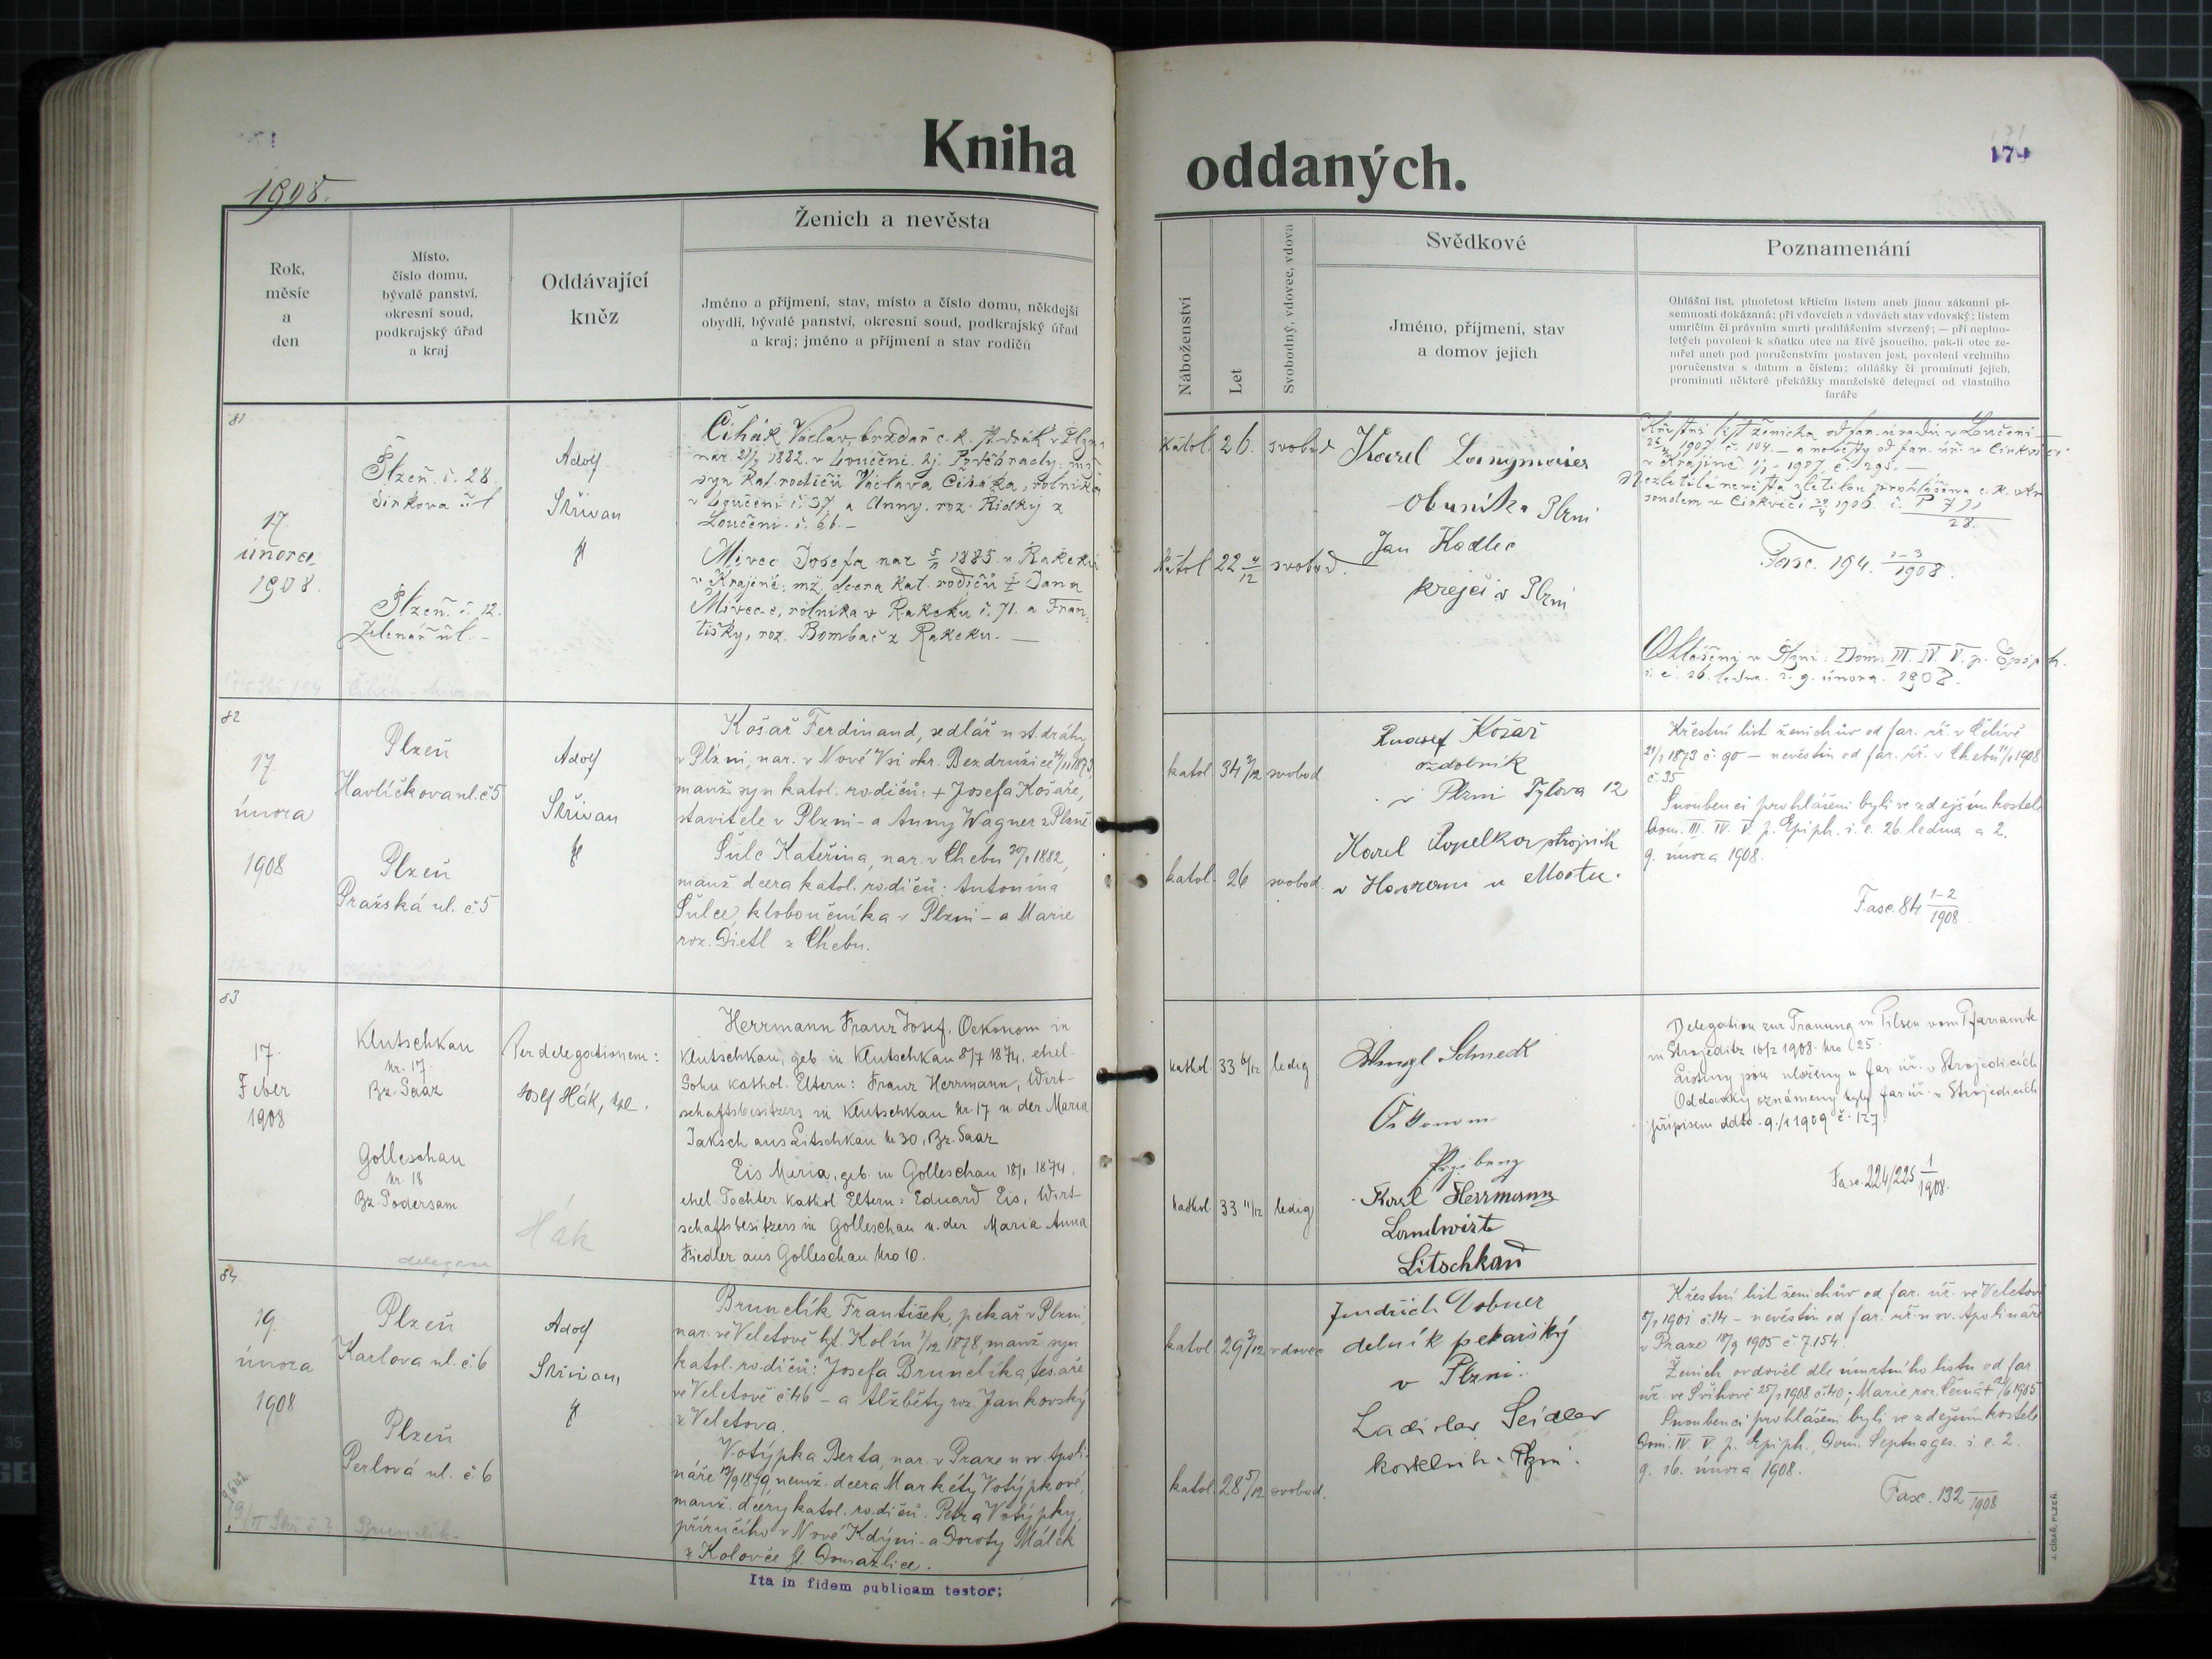 Kniha oddaných.
1908.
171
Rok,
měsíc
a
den
Místo,
číslo domu,
bývalé panství,
okresní soud,
podkrajský úřad
a kraj
Oddávající
kněz
Ženich a nevěsta
Jméno a příjmení, stav, místo a číslo domu, někdejší
obydlí, bývalé panství, okresní soud, podkrajský úřad
a kraj; jméno a příjmení a stav rodičů
Náboženství
Let
Svobodný, vdovec, vdova
Svědkové
Jméno, příjmení, stav
a domov jejich
Poznamenání
Ohlášní list, plnoletost křticím listem aneb jinou zákonní pí-
semností dokázaná; při vdovcích a vdovách stav vdovský; listem
umrlčím či právním smrti prohlášením stvrzený; — při neplno-
letých povolení k sňatku otce na živě jsoucího, pak-li otec ze-
mřel aneb pod poručenstvím postaven jest, povolení vrchního
poručenstva s datum a číslem; ohlášky či prominutí jejich,
prominutí některé překážky manželské delegací od vlastního
faráře
81
17.
února
1908.
Plzeň č. 28
Plzeň č. 12.
Adolf
Skřivan
Čihák Václav,
nar. 1882. v Loučeni.
syn kat. rodičů Václava Čiháka, rolníka
v Loučeni č. 37 a Anny, roz. Řídký z
Loučeni.
Mivec Josefa nar. 1885 v Rakeku
v Krajině, dcera kat. rodičů Jana
Mivece, rolníka v Rakeku č. 71. a Fran-
tišky, roz. Bombač z Rakeku. —
katol. 26. svobod
katol 22 4/12 svobod.
Karel Langmaier
obuvník v Plzni
Jan Kadlec
krejčí v Plzni
Fasc. 194. 1-3/1908.
Ohlášeni v Plzni: Dom: III. IV. V. p. Epiph.
82
17.
února
1908
Plzeň
Havlíčkova ul. č 5
Plzeň
Pražská ul. č 5
Adolf
Skřivan
Košař Ferdinand, sedlář u st. dráhy
v Plzni, nar. v Nové Vsi okr. Bezdružice
manž. syn katol. rodičů: + Josefa Košaře,
stavitele v Plzni – a Anny Wagner z Plzně.
Šulc Kateřina, nar. v Chebu 1882,
manž. dcera katol. rodičů: Antonína
Šulce, kloboučníka v Plzni – a Marie
roz. Dietl z Chebu.
katol. 34 svobod.
katol. 26 svobod.
Košař
v Plzni Tylova 12
Karel Popelka, strojník
u Mostu.
Křestní list ženichův od far. úř. v
1873 č. 90 — nevěstin od far. úř. v Chebu 1908
č. 35
Snoubenci prohlášeni byli ve zdejším kostele
Dom. III. IV. V. p. Epiph. i. e. 26. ledna a 2.
9. února 1908.
Fasc. 84 1-2/1908.
83
17.
Feber
1908
Klutschkau
Nr. 17.
Bz. Saaz
Golleschau
Nr. 18
Bz. Podersam
Per delegationem:
Josef Hák,
Hák
Herrmann Franz Josef, Oekonom in
Klutschkau, geb. in Klutschkau 8/7 1874, ehel.
Sohn kathol. Eltern: Franz Herrmann, Wirt-
schaftsbesitzers in Klutschkau Nr. 17 u. der Maria
Jaksch aus Litschkau N 30, Bz. Saaz
Eis Maria, geb. in Golleschau 1874,
ehel Tochter kathol Eltern: Eduard Eis, Wirt-
schaftsbesitzers in Golleschau u. der Maria Anna
Fiedler aus Golleschau Nro 10.
kathol. 33 6/12 ledig
kathol. 33 11/12 ledig
Wenzl Schmedt
Ökonom
Karl Herrmann
Landwirt
Litschkau
Delegation zur Trauung in Pilsen vom Pfarramte
in Strojeditz 16/2 1908. Nro 125.
Listiny jsou uloženy u far. úř. v Strojedicích
Oddavky oznámeny byly far. úř. v Strojedicích
přípisem ddto. 9./1 1909 č. 127.
Fasc. 224/225 1/1908.
84
19.
února
1908
Plzeň
Karlova ul. č. 6
Plzeň
Perlová ul. č. 6
Adolf
Skřivan,
Brunclík František, pekař v Plzni,
nar. ve Veletově hjt. Kolín 1/12 1878, manž. syn
katol. rodičů: Josefa Brunclíka, tesaře
ve Veletově č. 46 – a Alžběty roz. Jankovský
z Veletova.
Votýpka Berta, nar. v Praze u sv. Apoli-
náře 1879, nemž. dcera Markéty Votýpkové,
manž. dcery katol. rodičů: Petra Votýpky,
příručího v Nové Kdýni – a Doroty Málek
z Koloveč hjt. Domažlice.
katol. 29 vdovec
katol. 28 5/12 svobod.
Jindřich Vobner
dělník pekařský
v Plzni.
Ladislav Seidler
kostelník
Křestní list ženichův od far. úř. ve Veletově
1901 č. 14 – nevěstin od far. úř. u sv. Apolináře
v Praze 18/9 1905 č. 7.154.
Ženich ovdověl dle úmrtního listu od far.
úř. ve 1908 č. 40; Marie roz. 1905
Snoubenci prohlášeni byli ve zdejším kostele
Dom. IV. V. p. Epiph., Dom. Septuages. i. e. 2.
9. 16. února 1908.
Fasc. 132/1908
Ita in fidem publicam testor:
J. CÍSAŘ, PLZEŇ.